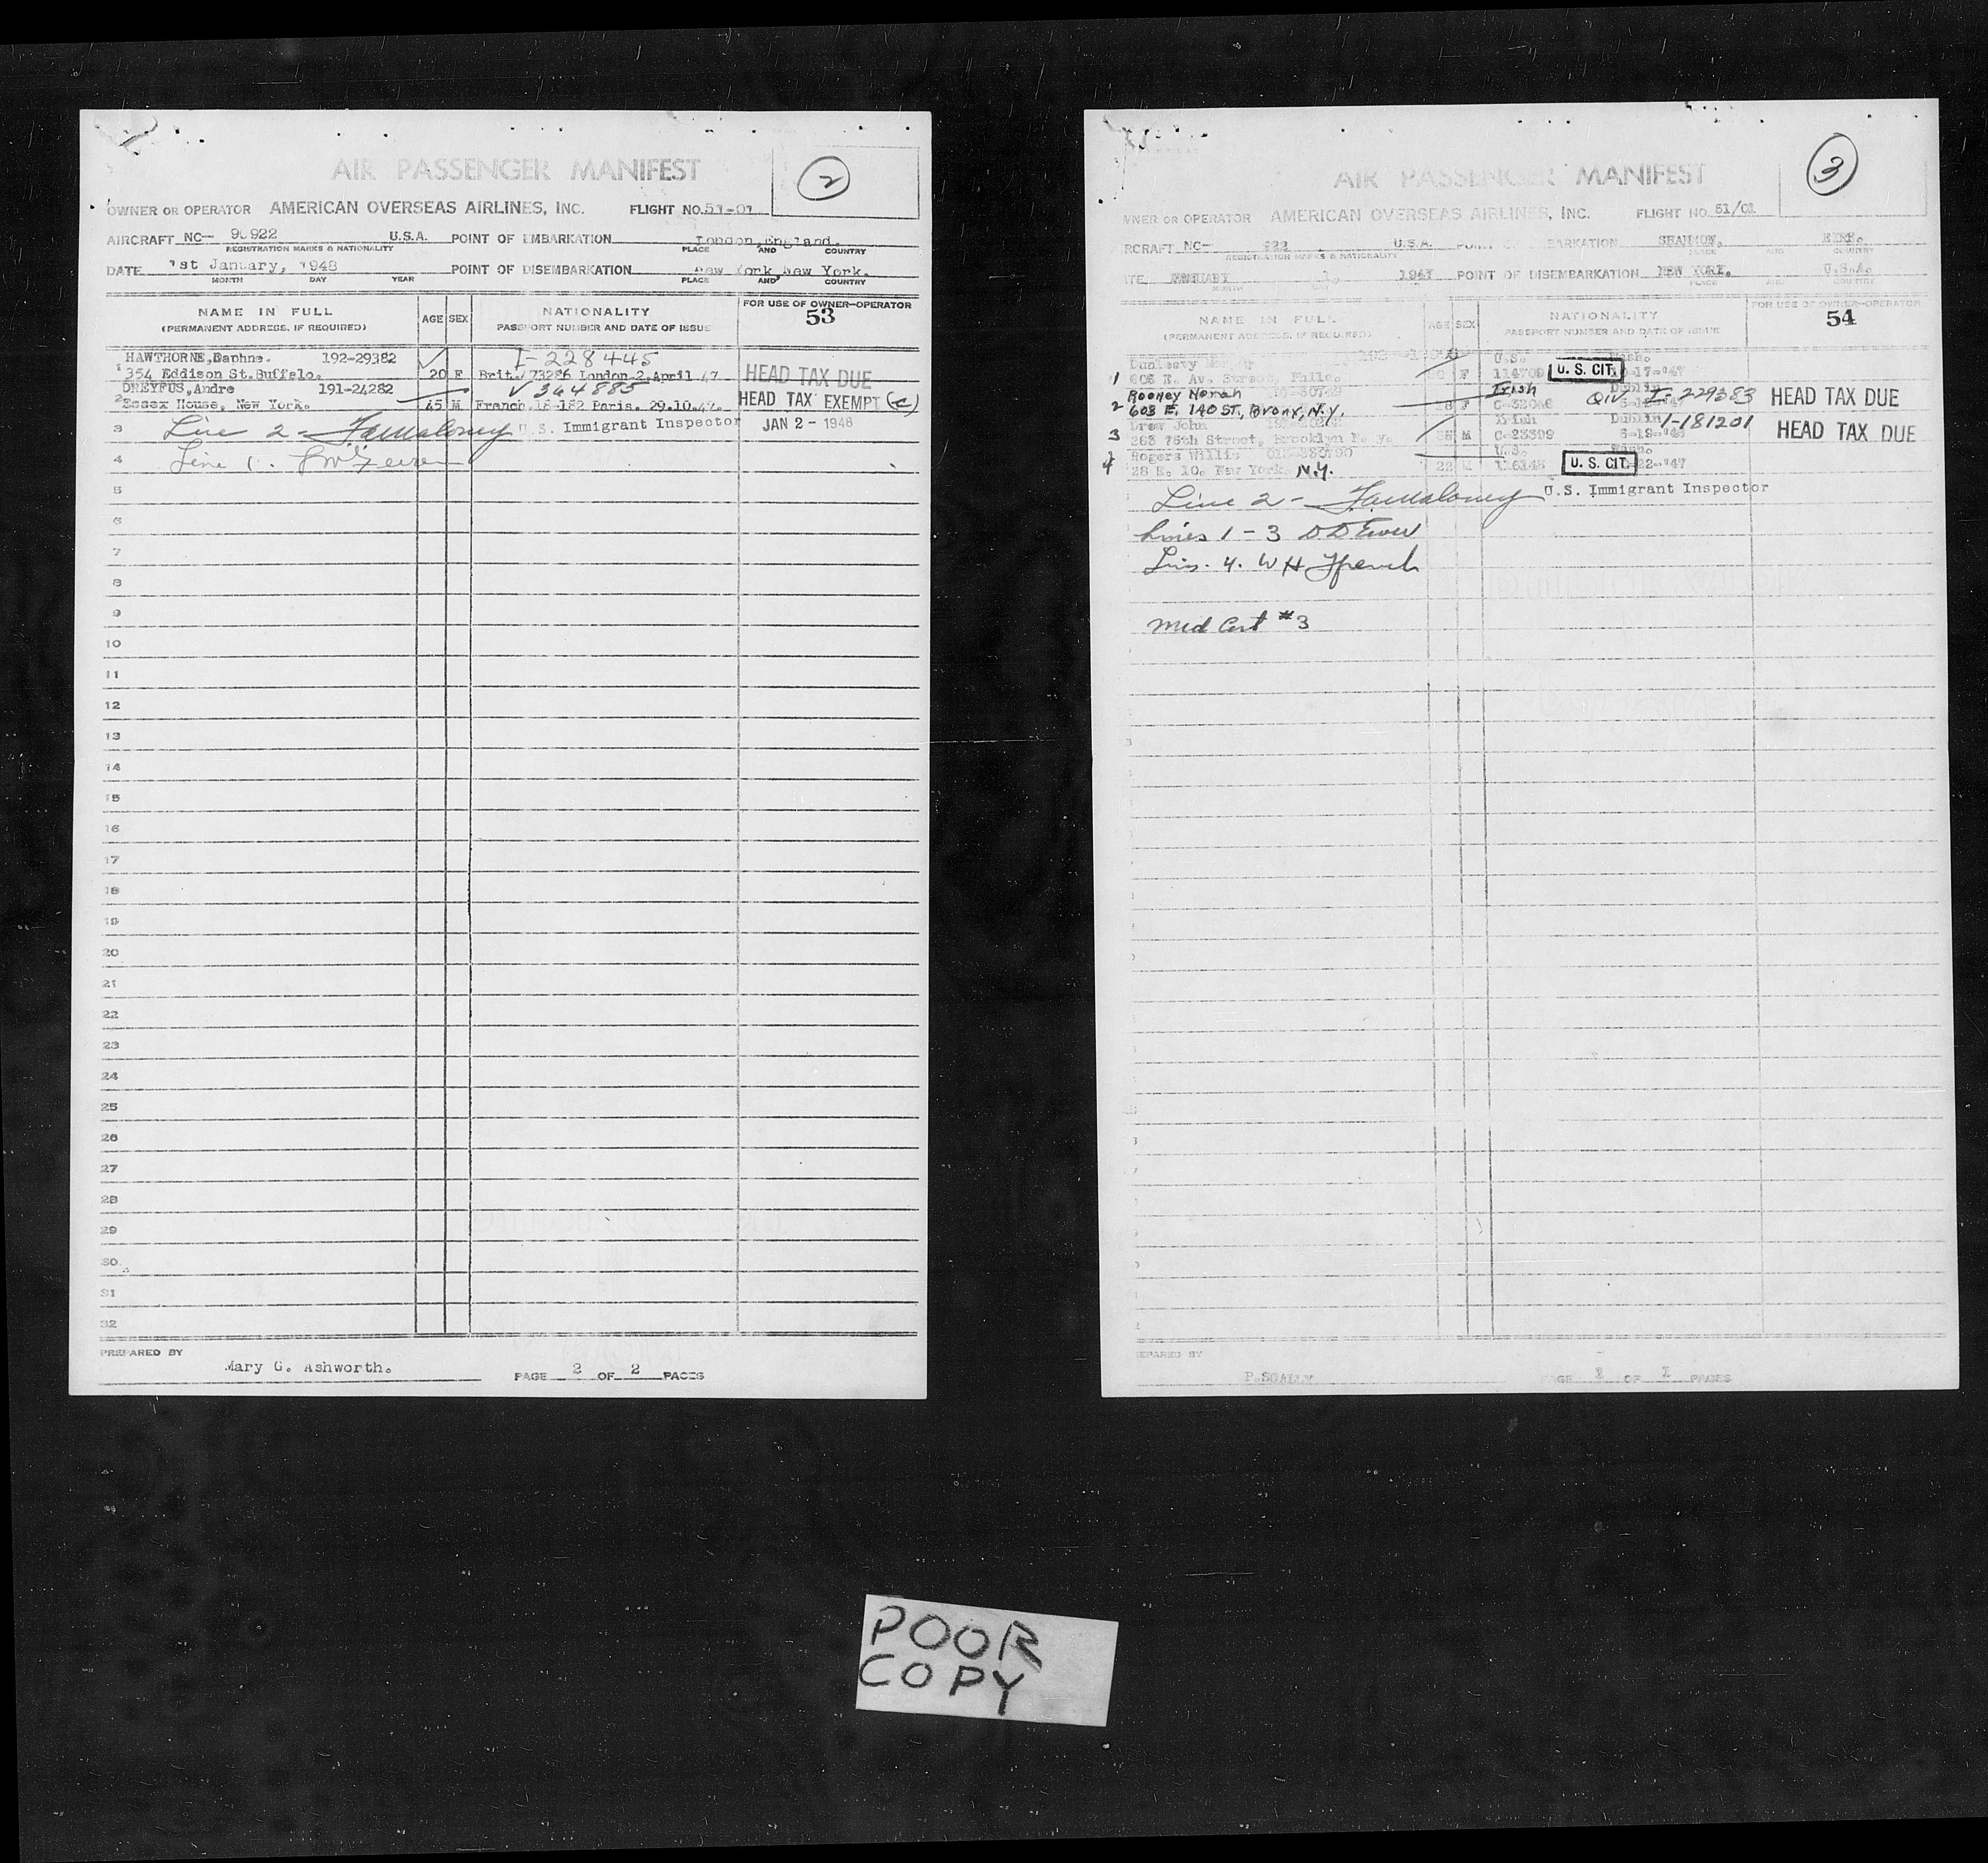 AIR PASSENGER MANIFEST
2
OWNER OR OPERATOR AMERICAN OVERSEAS AIRLINES, INC. FLIGHT NO. 51-01
AIRCRAFT NC— 90922 U.S.A. POINT OF EMBARKATION London, England.
REGISTRATION MARKS & NATIONALITY PLACE AND COUNTRY
DATE 1st January, 1948 POINT OF DISEMBARKATION New York, New York.
MONTH DAY YEAR PLACE AND COUNTRY
NAME IN FULL AGE SEX NATIONALITY FOR USE OF OWNER—OPERATOR
(PERMANENT ADDRESS, IF REQUIRED) PASSPORT NUMBER AND DATE OF ISSUE 53
HAWTHORNE, Daphne. 192-29382 I-228445
1 354 Eddison St. Buffalo. 20 F Brit. 73286 London 2. April 47 HEAD TAX DUE
DREYFUS, Andre 191-24282 V 364885
2 Essex House, New York. 45 M French. 18-182 Paris. 29.10.47. HEAD TAX EXEMPT (c)
3 Line 2 - U.S. Immigrant Inspector JAN 2 - 1948
4 Line 1.
5
6
7
8
9
10
11
12
13
14
15
16
17
18
19
20
21
22
23
24
25
26
27
28
29
30
31
32
PREPARED BY
Mary G. Ashworth. PAGE 2 OF 2 PAGES
AIR PASSENGER MANIFEST
3
WNER OR OPERATOR AMERICAN OVERSEAS AIRLINES, INC. FLIGHT NO. 51/01
RCRAFT NC— 922 U.S.A. POINT OF EMBARKATION SHANNON. EIRE.
REGISTRATION MARKS & NATIONALITY PLACE AND COUNTRY
ATE JANUARY 1947 POINT OF DISEMBARKATION NEW YORK. U.S.A.
MONTH PLACE AND COUNTRY
NAME IN FULL AGE SEX NATIONALITY FOR USE OF OWNER—OPERATOR
(PERMANENT ADDRESS, IF REQUIRED) PASSPORT NUMBER AND DATE OF ISSUE 54
Dunleavy U.S. Wash.
1 606 E. Av. Falls. F 114709 U. S. CIT. 10-17-'47
Rooney Norah Irish Dublin QIV I-229383 HEAD TAX DUE
2 603 E. 140 ST., Bronx, N.Y. F
Drew John Irish Dublin I-181201
3 263 76th Street, Brooklyn N. Y. M C-23399 6-19-'47 HEAD TAX DUE
Rogers Willis U.S.
4 28 E. 10. New York. N.Y. 22 M 116148 U. S. CIT. 22-'47
Line 2 - U.S. Immigrant Inspector
Lines 1 - 3
Lin. 4. W H French
Med Cert #3
EPARED BY
P. SCALLY PAGE 1 OF 1 PAGES
POOR
COPY